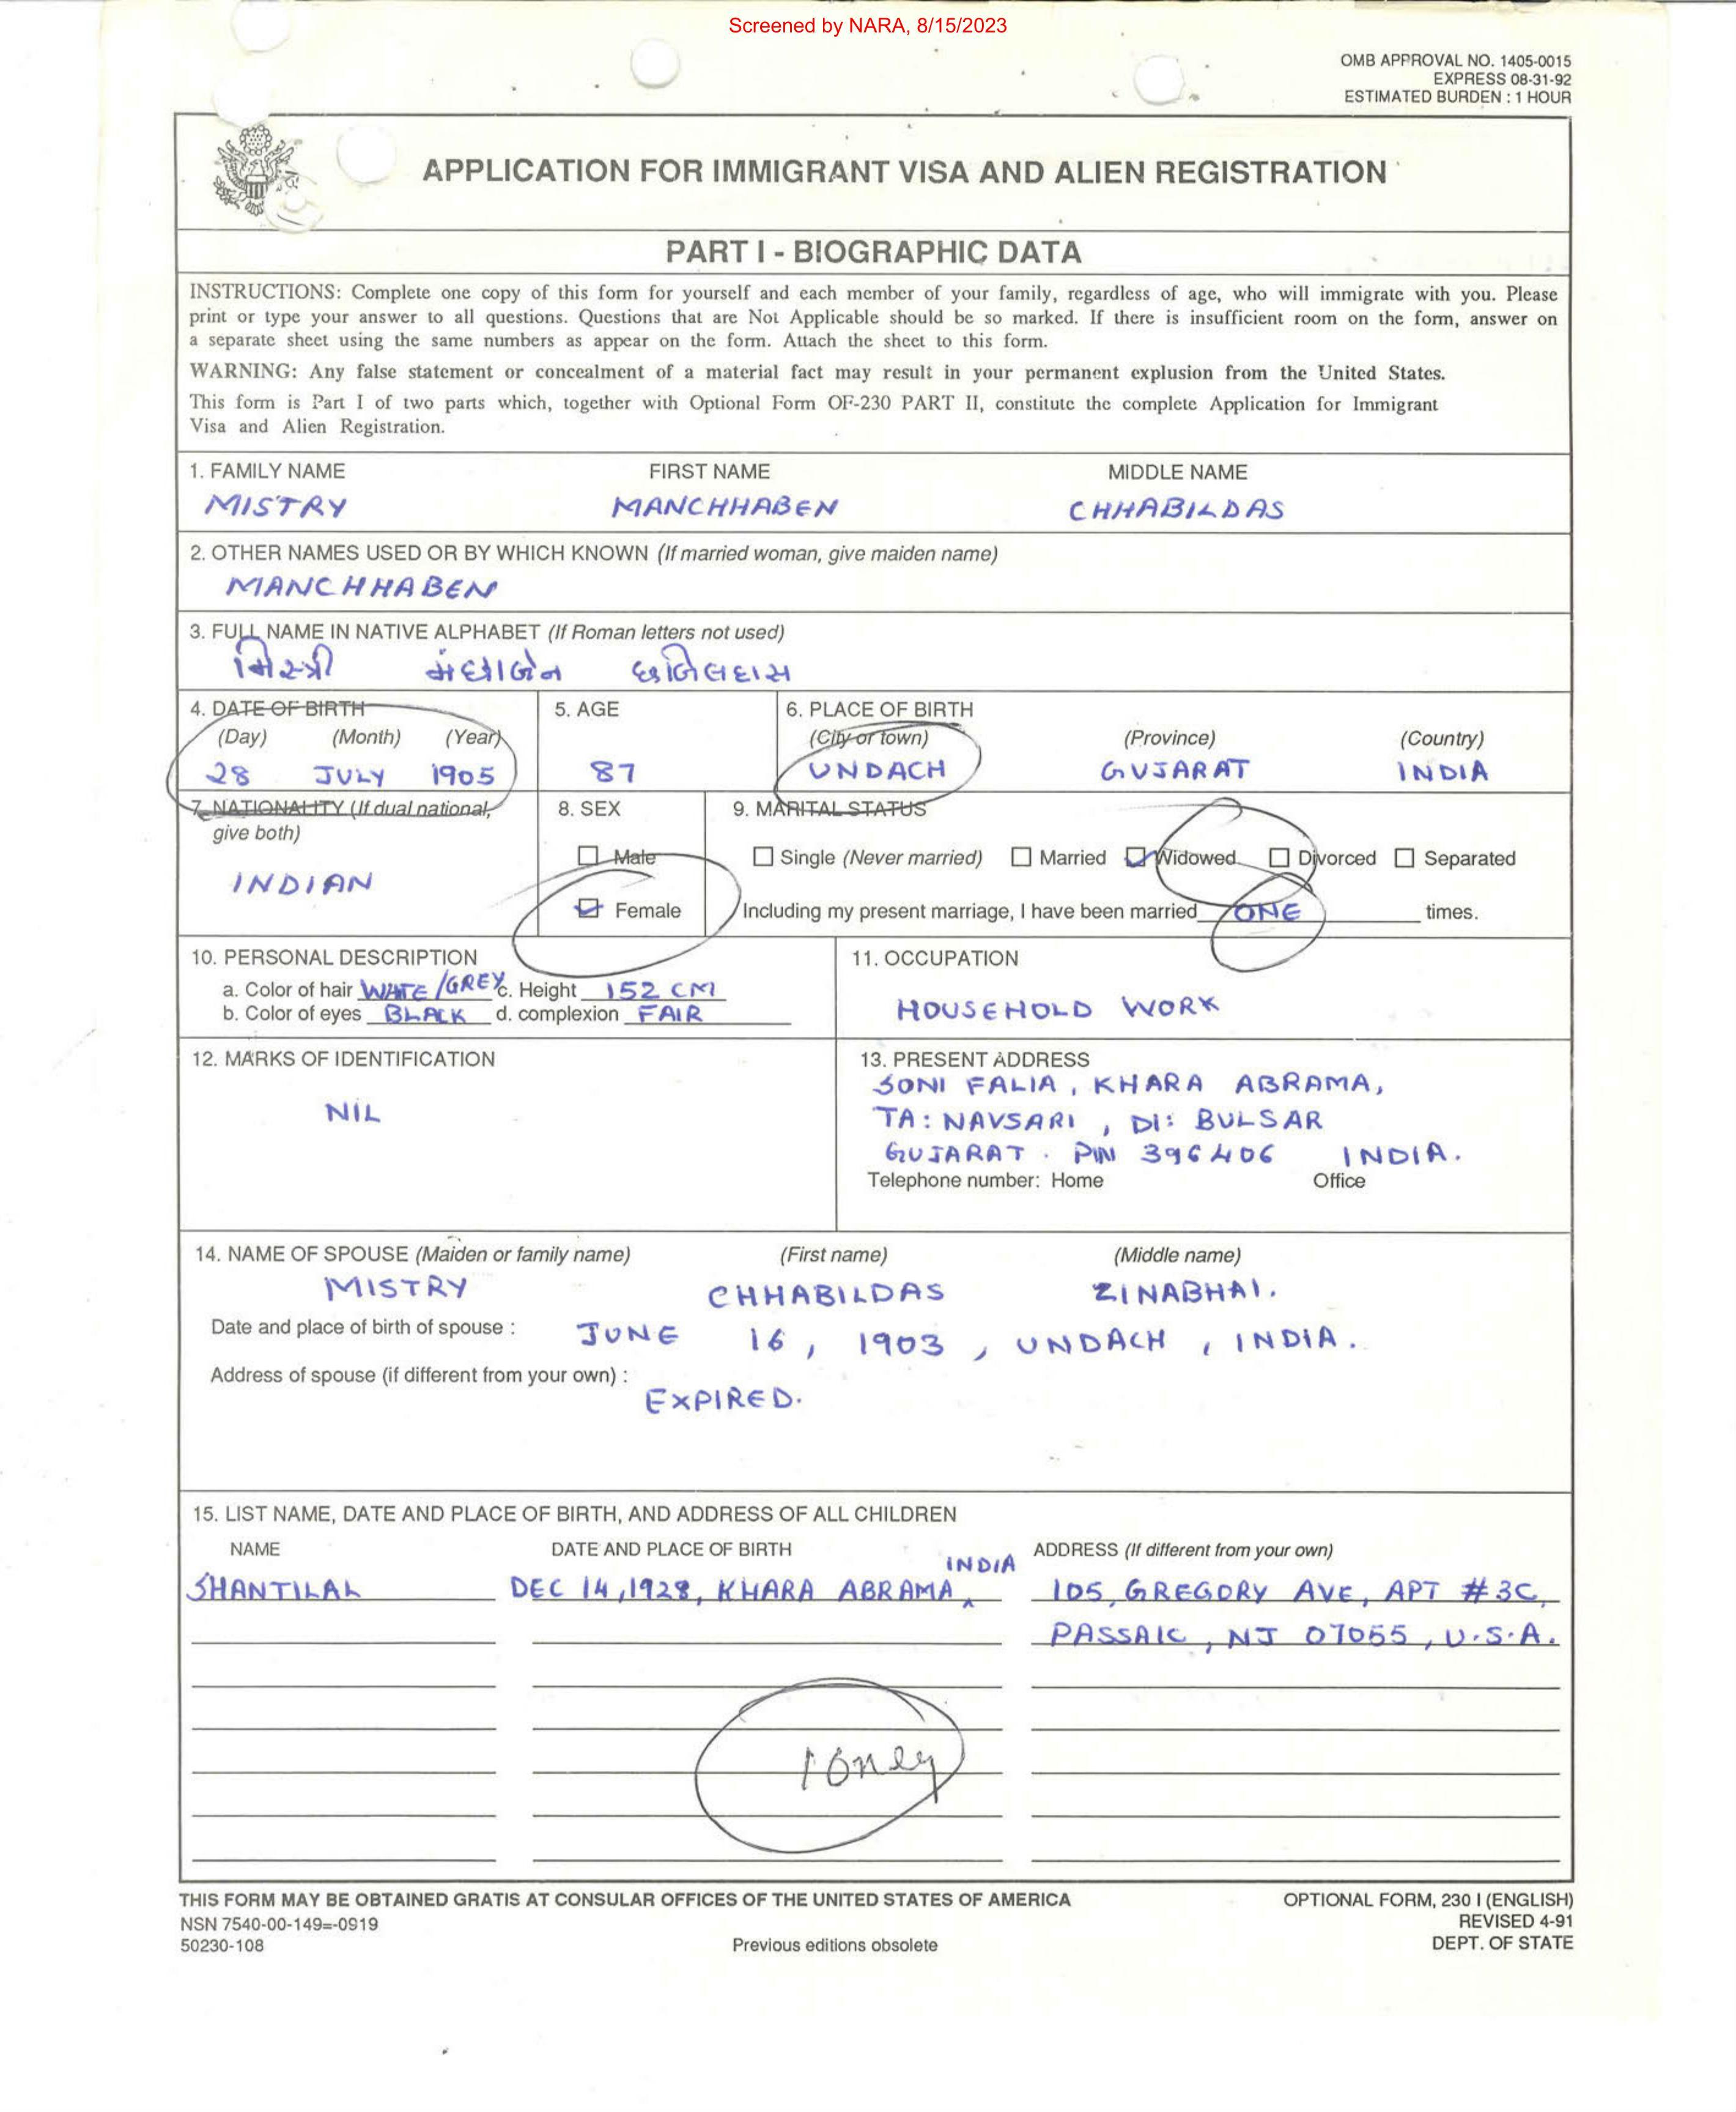 Screened by NARA, 8/15/2023
OMB APPROVAL NO. 1405-0015
EXPRESS 08-31-92
ESTIMATED BURDEN : 1 HOUR
APPLICATION FOR IMMIGRANT VISA AND ALIEN REGISTRATION
PART I - BIOGRAPHIC DATA
INSTRUCTIONS: Complete one copy of this form for yourself and each member of your family, regardless of age, who will immigrate with you. Please
print or type your answer to all questions. Questions that are Not Applicable should be so marked. If there is insufficient room on the form, answer on
a separate sheet using the same numbers as appear on the form. Attach the sheet to this form.
WARNING: Any false statement or concealment of a material fact may result in your permanent explusion from the United States.
This form is Part I of two parts which, together with Optional Form OF-230 PART II, constitute the complete Application for Immigrant
Visa and Alien Registration.
1. FAMILY NAME FIRST NAME MIDDLE NAME
MISTRY MANCHHABEN CHHABILDAS
2. OTHER NAMES USED OR BY WHICH KNOWN (If married woman, give maiden name)
MANCHHABEN
3. FULL NAME IN NATIVE ALPHABET (If Roman letters not used)
મિસ્ત્રી મંછાબેન છબિલદાસ
4. DATE OF BIRTH 5. AGE 6. PLACE OF BIRTH
(Day) (Month) (Year) (City or town) (Province) (Country)
28 JULY 1905 87 UNDACH GUJARAT INDIA
7. NATIONALITY (If dual national, 8. SEX 9. MARITAL STATUS
give both)
Male Single (Never married) Married Widowed Divorced Separated
INDIAN
Female Including my present marriage, I have been married ONE times.
10. PERSONAL DESCRIPTION 11. OCCUPATION
a. Color of hair WHITE/GREY c. Height 152 CM
b. Color of eyes BLACK d. complexion FAIR HOUSEHOLD WORK
12. MARKS OF IDENTIFICATION 13. PRESENT ADDRESS
SONI FALIA, KHARA ABRAMA,
NIL TA: NAVSARI, DI: BULSAR
GUJARAT. PIN 396406 INDIA.
Telephone number: Home Office
14. NAME OF SPOUSE (Maiden or family name) (First name) (Middle name)
MISTRY CHHABILDAS ZINABHAI.
Date and place of birth of spouse : JUNE 16, 1903, UNDACH, INDIA.
Address of spouse (if different from your own) :
EXPIRED.
15. LIST NAME, DATE AND PLACE OF BIRTH, AND ADDRESS OF ALL CHILDREN
NAME DATE AND PLACE OF BIRTH ADDRESS (If different from your own)
INDIA
SHANTILAL DEC 14, 1928, KHARA ABRAMA, 105, GREGORY AVE, APT #3C,
PASSAIC, NJ 07055, U.S.A.
1 only
THIS FORM MAY BE OBTAINED GRATIS AT CONSULAR OFFICES OF THE UNITED STATES OF AMERICA OPTIONAL FORM, 230 I (ENGLISH)
NSN 7540-00-149=-0919 REVISED 4-91
50230-108 Previous editions obsolete DEPT. OF STATE